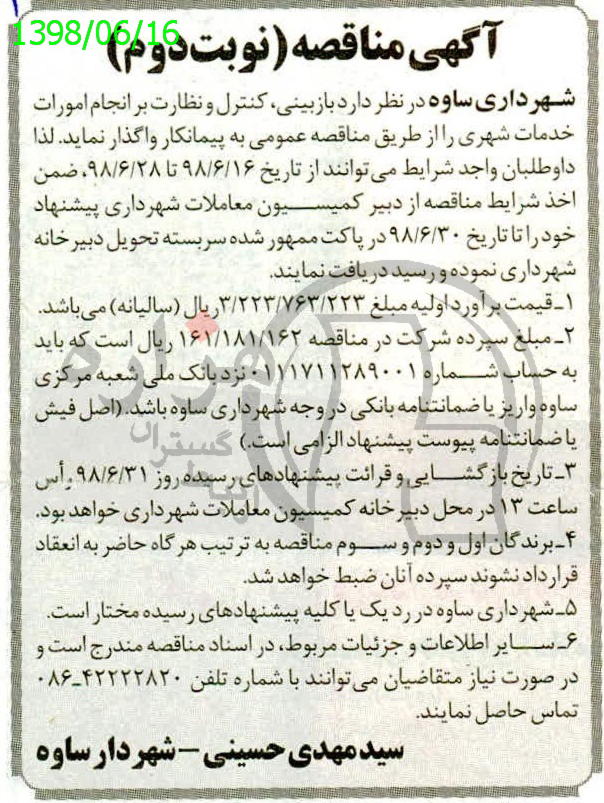 1398/06/16
آگهی مناقصه (نوبت دوم)
شهرداری ساوه در نظر دارد بازبینی، کنترل و نظارت بر انجام امورات
خدمات شهری را از طریق مناقصه عمومی به پیمانکار واگذار نماید. لذا
داوطلبان واجد شرایط می‌توانند از تاریخ ۹۸/۶/۱۶ تا ۹۸/۶/۲۸، ضمن
اخذ شرایط مناقصه از دبیر کمیسیون معاملات شهرداری پیشنهاد
خود را تا تاریخ ۹۸/۶/۳۰ در پاکت ممهور شده سربسته تحویل دبیرخانه
شهرداری نموده و رسید دریافت نمایند.
۱ـ قیمت برآورد اولیه مبلغ ۳/۲۲۳/۷۶۳/۲۲۳ریال (سالیانه) می‌باشد.
۲ـ مبلغ سپرده شرکت در مناقصه ۱۶۱/۱۸۱/۱۶۲ ریال است که باید
به حساب شماره ۰۱۱۱۷۱۱۲۸۹۰۰۱ نزد بانک ملی شعبه مرکزی
ساوه واریز یا ضمانتنامه بانکی در وجه شهرداری ساوه باشد. (اصل فیش
یا ضمانتنامه پیوست پیشنهاد الزامی است.)
۳ـ تاریخ بازگشایی و قرائت پیشنهادهای رسیده روز ۹۸/۶/۳۱ رأس
ساعت ۱۳ در محل دبیرخانه کمیسیون معاملات شهرداری خواهد بود.
۴ـ برندگان اول و دوم و سوم مناقصه به ترتیب هرگاه حاضر به انعقاد
قرارداد نشوند سپرده آنان ضبط خواهد شد.
۵ـ شهرداری ساوه در رد یک یا کلیه پیشنهادهای رسیده مختار است.
۶ـ سایر اطلاعات و جزئیات مربوط، در اسناد مناقصه مندرج است و
در صورت نیاز متقاضیان می‌توانند با شماره تلفن ۴۲۲۲۲۸۲۰ـ۰۸۶
تماس حاصل نمایند.
سیدمهدی حسینی – شهردار ساوه
هزاره
گستران